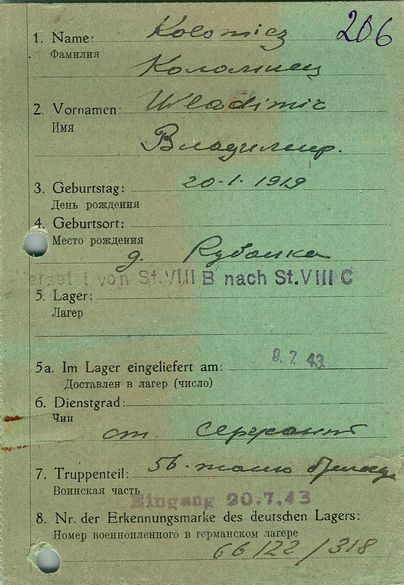 206
1. Name: Kolomiez
Фамилия
Коломиец
2. Vornamen: Wladimir
Имя
Владимир.
3. Geburtstag: 20·1·1919
День рождения
4. Geburtsort:
Место рождения
д. Рубанка
versetzt von St.VIII B nach St.VIII C
5. Lager:
Лагер
5a. Im Lager eingeliefert am: 9.7.43
Доставлен в лагер (число)
6. Dienstgrad:
Чин
ст. сержант
7. Truppenteil: 56-танк бригада
Воинская часть
Eingang 20.7.43
8. Nr. der Erkennungsmarke des deutschen Lagers:
Номер военнопленного в германском лагере
66122/318